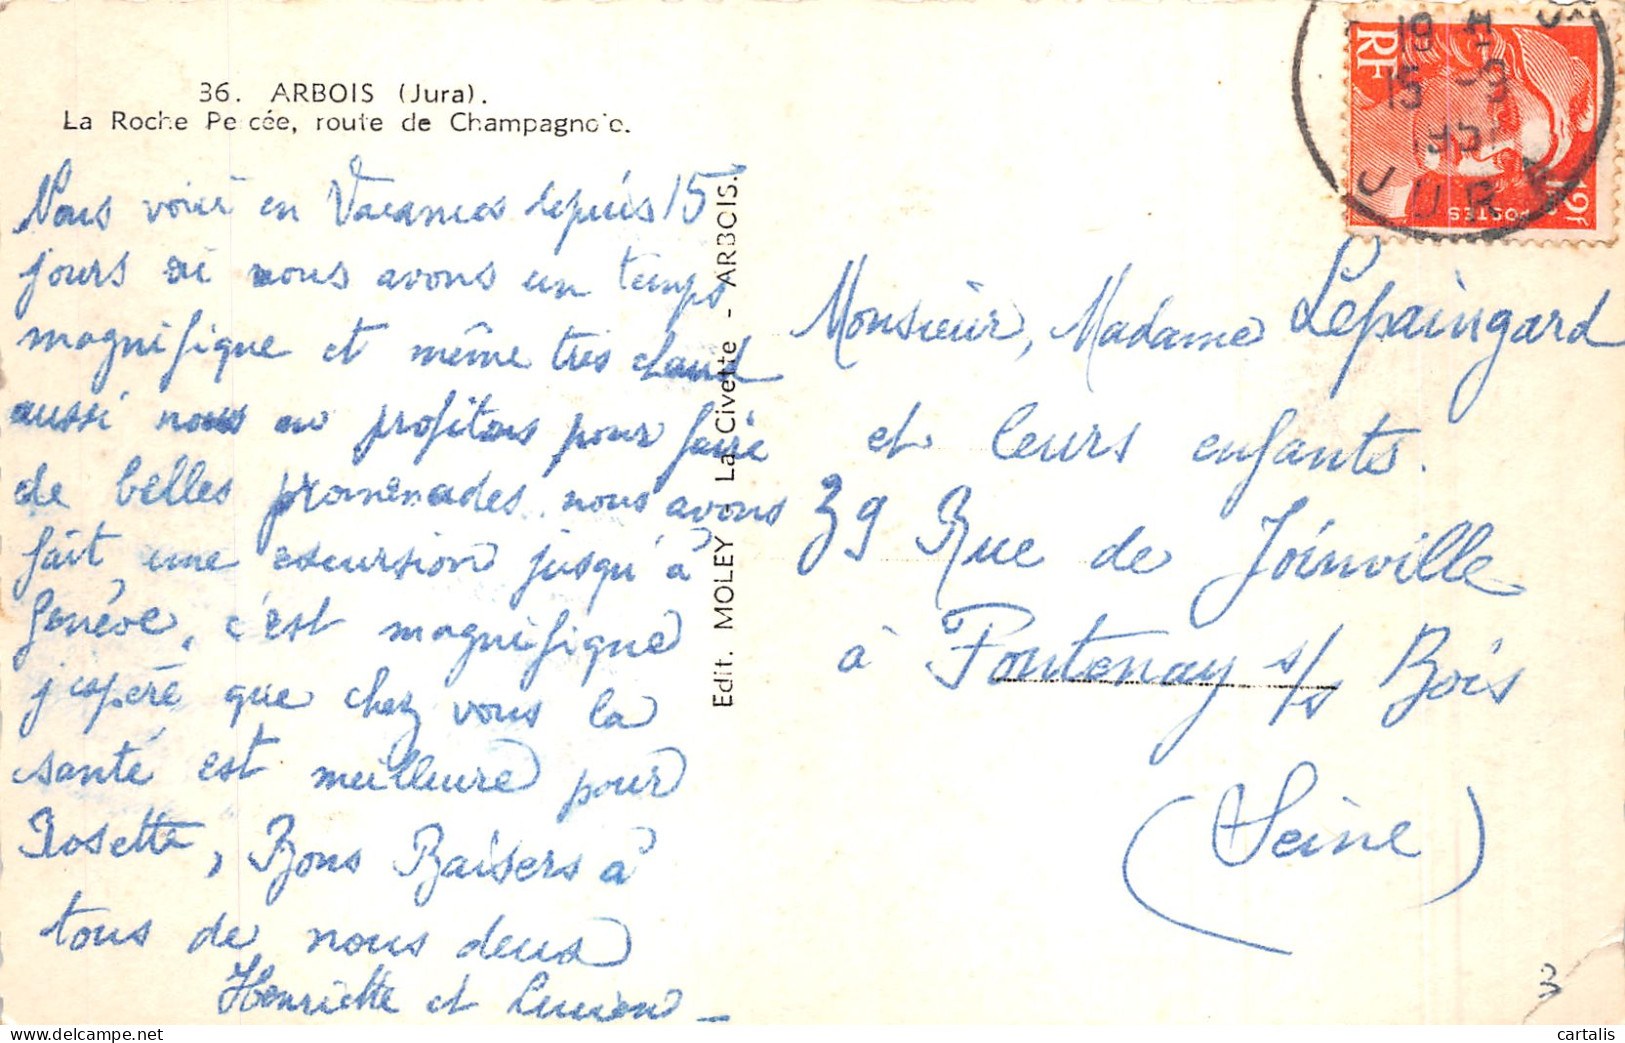 36. ARBOIS (Jura).
La Roche Percée, route de Champagnole.
Nous voici en Vacances depuis 15
jours et nous avons un temps
magnifique et même très chaud
aussi nous en profitons pour faire
de belles promenades, nous avons
fait une excursion jusqu'à
Genève, c'est magnifique
j'espère que chez vous la
santé est meilleure pour
Rosette, Bons Baisers à
tous de nous deux
Henriette et Lucien
Edit. MOLEY - La Civette - ARBOIS.
RF
POSTES
12F
19 H
15
1951
JURA
Monsieur, Madame Lepaingard
et leurs enfants.
39 Rue de Joinville
à Fontenay s/s Bois
(Seine)
3
cartalis